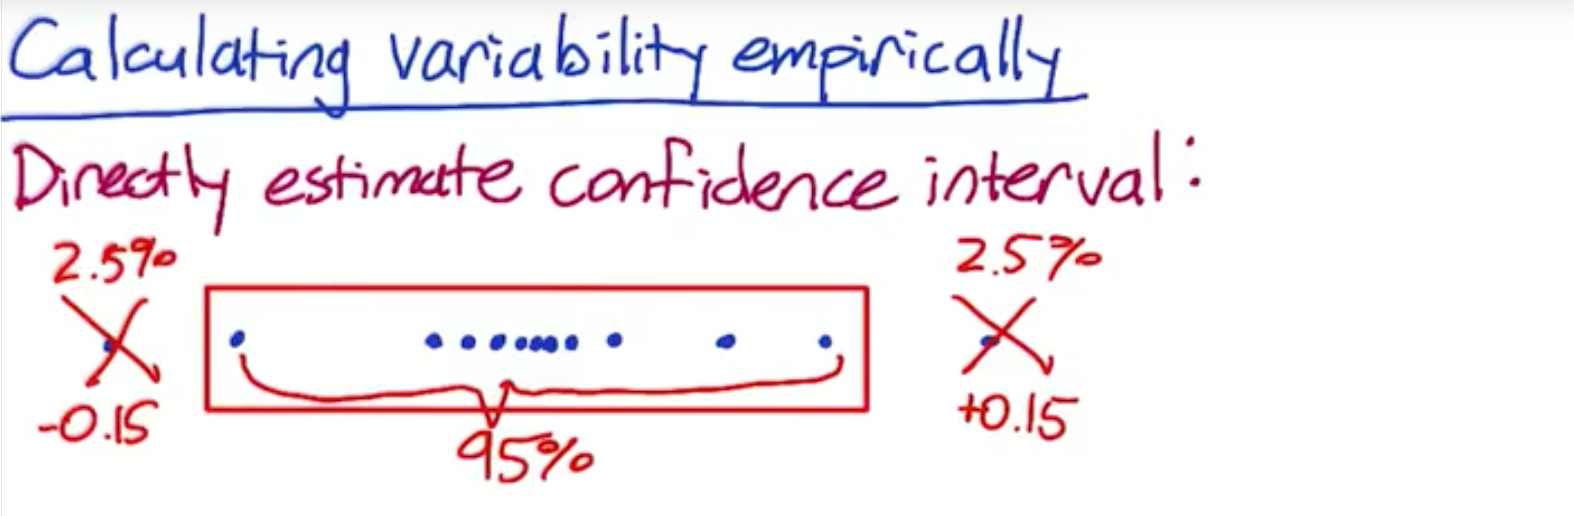 Calculating variability empirically
Directly estimate confidence interval:
2.5% 2.5%
-0.15 +0.15
95%